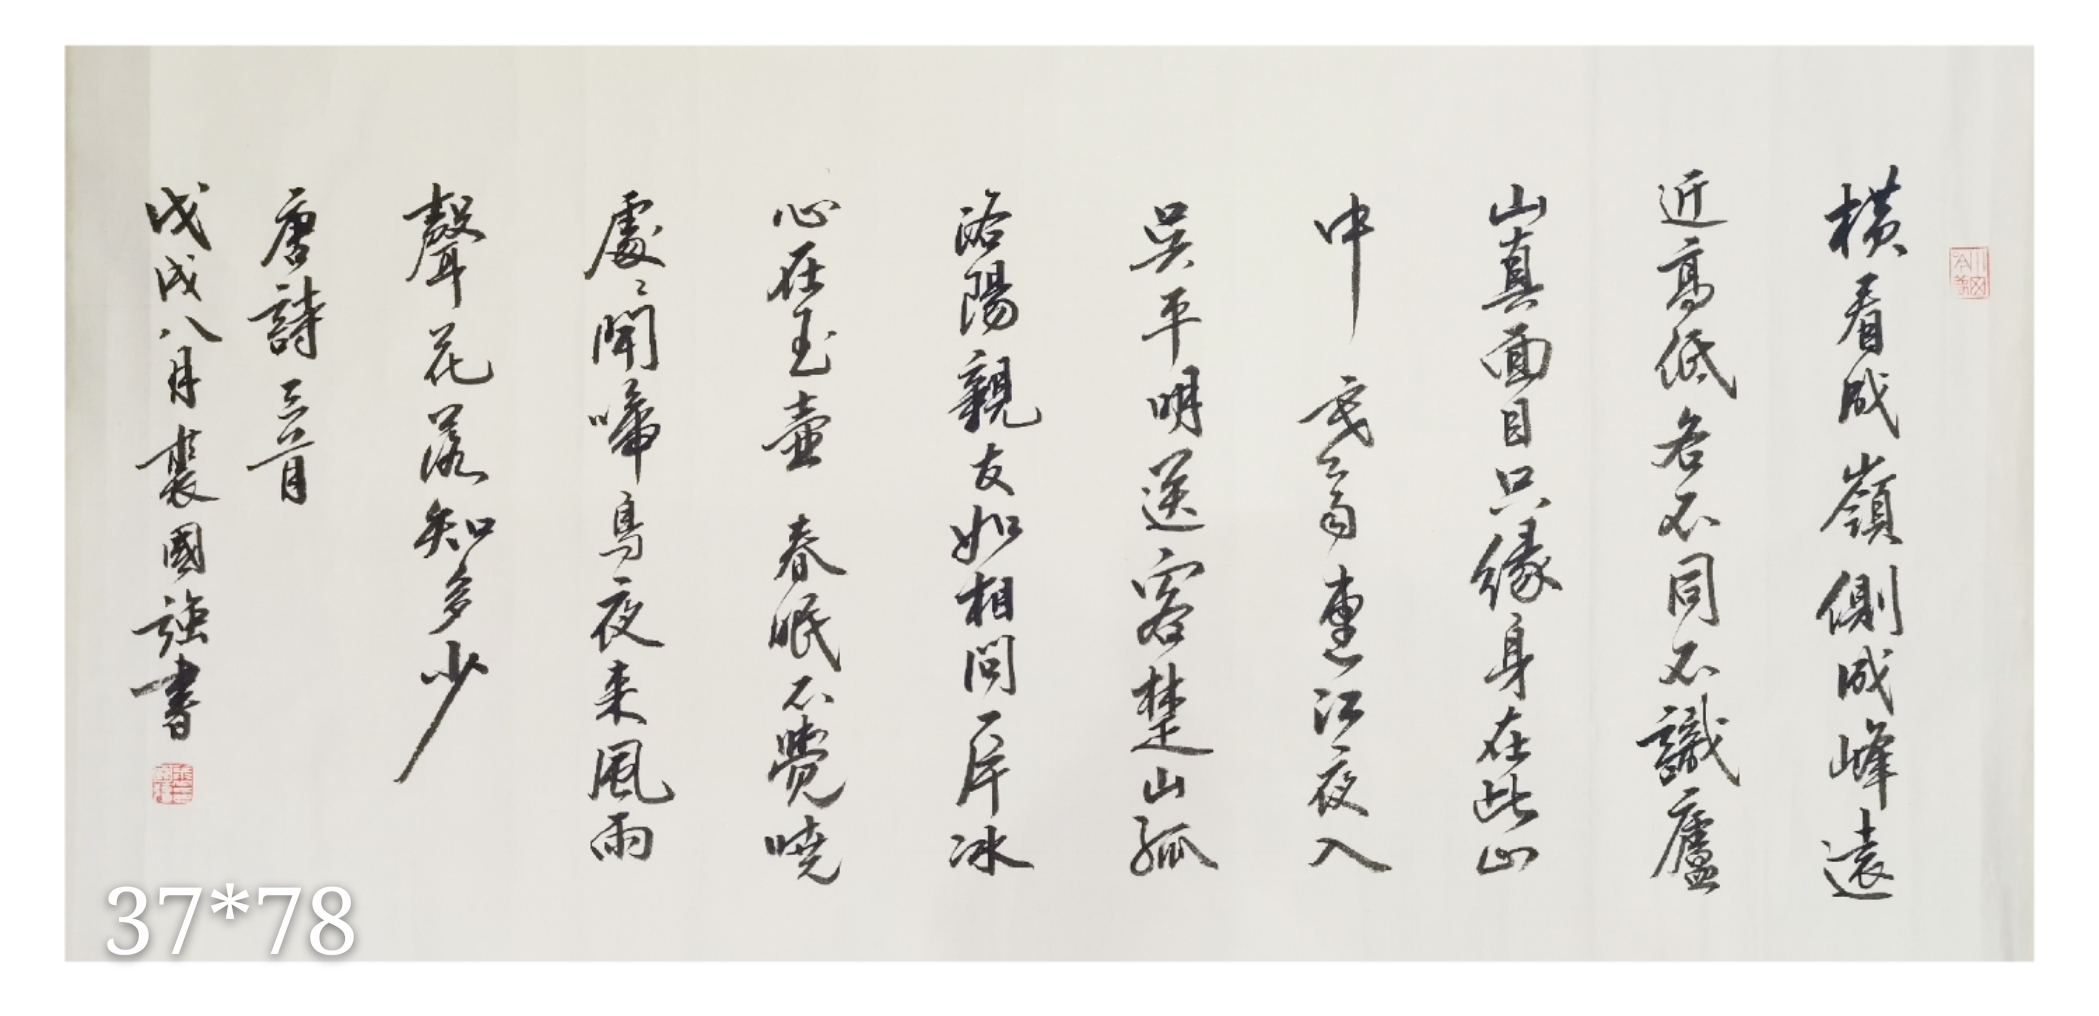 橫看成嶺側成峰遠
近高低各不同不識廬
山真面目只緣身在此山
中 寒雨連江夜入
吳平明送客楚山孤
洛陽親友如相問一片冰
心在玉壺 春眠不覺曉
處〻聞啼鳥夜来風雨
聲花落知多少
唐詩三首
戊戌八月裴國強書
37*78